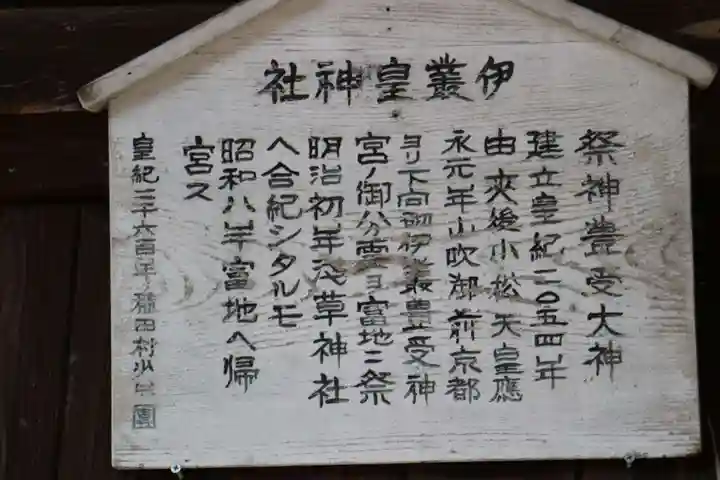 伊叢皇神社
祭神豊受大神
建立皇紀二〇五四年
由来後小松天皇應
永元年山吹御前京都
ヨリ下向伊叢豊受神
宮ノ御分霊ヲ當地ニ祭
明治初年浅草神社
ヘ合紀シタルモ
昭和八年當地ヘ帰
宮ス
皇紀二千六百年